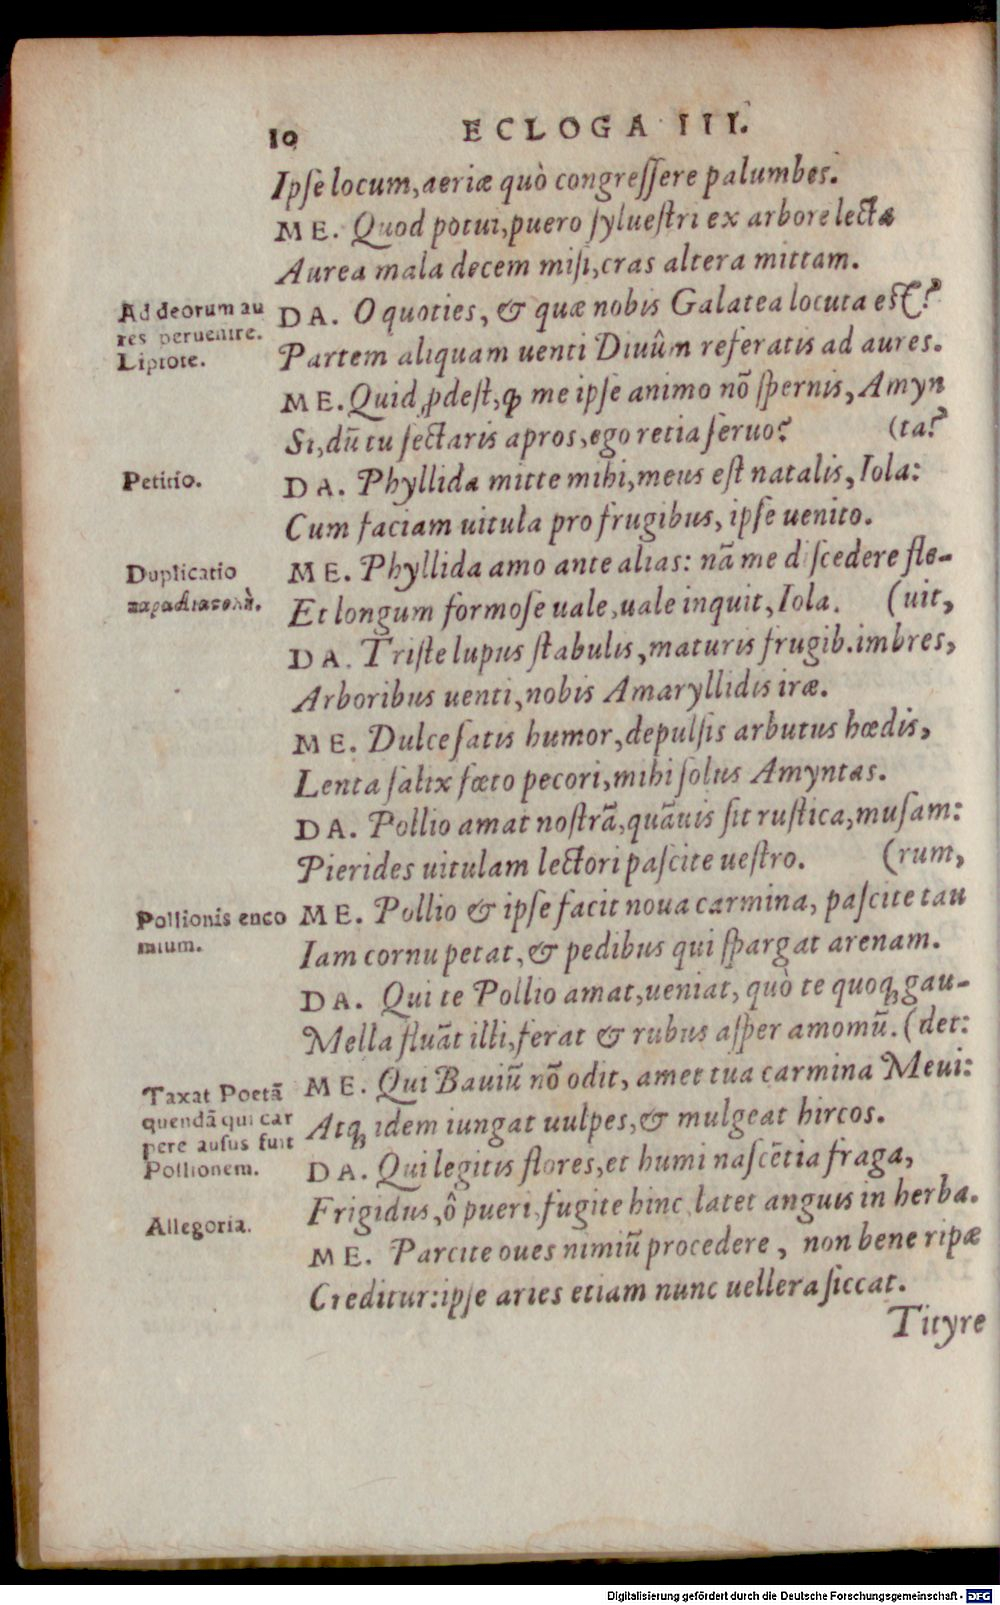 10 ECLOGA III.
Ipſe locum, aeriæ quò congreſſere palumbes.
ME. Quod potui, puero ſylueſtri ex arbore lecta
Aurea mala decem miſi, cras altera mittam.
Ad deorum au
res peruenire.
Liptote.
DA. O quoties, & quæ nobis Galatea locuta est?
Partem aliquam uenti Diuûm referatis ad aures.
ME. Quid ꝓdeſt, ꝙ me ipſe animo nõ ſpernis, Amyn
Si, dũ tu ſectaris apros, ego retia ſeruo? (ta?
Petitio.
DA. Phyllida mitte mihi, meus eſt natalis, Iola:
Cum faciam uitula pro frugibus, ipſe uenito.
Duplicatio
ME. Phyllida amo ante alias: nã me diſcedere fle-
Et longum formoſe uale, uale inquit, Iola. (uit,
DA. Triſte lupus ſtabulis, maturis frugib. imbres,
Arboribus uenti, nobis Amaryllidis iræ.
ME. Dulce ſatis humor, depulſis arbutus hœdis,
Lenta ſalix fœto pecori, mihi ſolus Amyntas.
DA. Pollio amat noſtrã, quãuis ſit ruſtica, muſam:
Pierides uitulam lectori paſcite ueſtro. (rum,
Pollionis enco
mium.
ME. Pollio & ipſe facit noua carmina, paſcite tau
Iam cornu petat, & pedibus qui ſpargat arenam.
DA. Qui te Pollio amat, ueniat, quò te quoq; gau-
Mella fluãt illi, ferat & rubus aſper amomũ. (det:
Taxat Poetã
quendã qui car
pere auſus fuit
Pollionem.
ME. Qui Bauiũ nõ odit, amet tua carmina Meui:
Atq; idem iungat uulpes, & mulgeat hircos.
DA. Qui legitis flores, et humi naſcẽtia fraga,
Frigidus, ô pueri, fugite hinc, latet anguis in herba.
Allegoria.
ME. Parcite oues nimiũ procedere, non bene ripæ
Creditur: ipſe aries etiam nunc uellera ſiccat.
Tityre
Digitalisierung gefördert durch die Deutsche Forschungsgemeinschaft - DFG